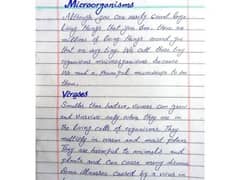 Microorganisms
Although you can easily count large
living things that you See. there are
millions of living things around you
that are very tiny. We call these tiny
organisms microorganisms because
We need a powerful microscope to see
them.
Viruses
Smaller than bacteria, viruses can grow
and survive only when they are in
the living cells of organisms. They
multiply in warm and moist places
They are harmful to animals and
plants and can cause many disease
Some illnesses caused by a virus in